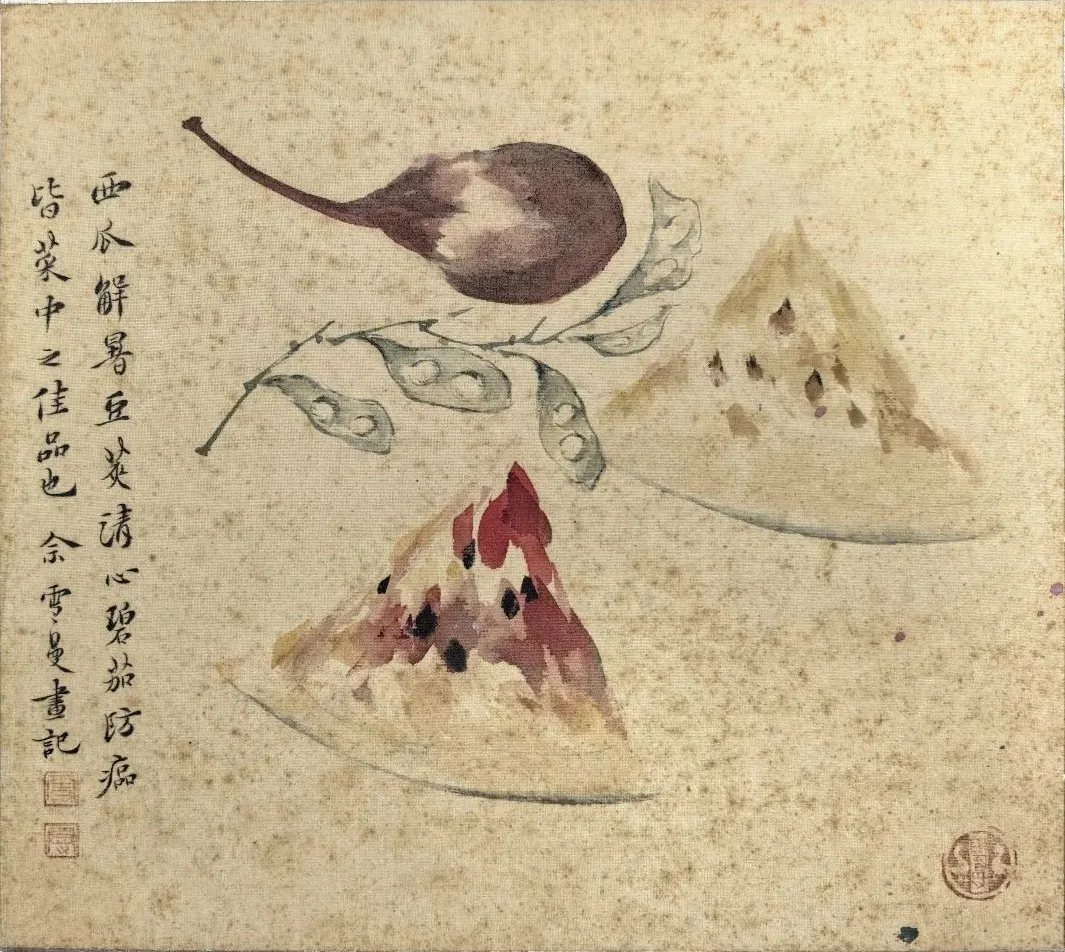 西瓜解暑豆莢清心碧茄防癌
皆菜中之佳品也 佘雪曼畫記